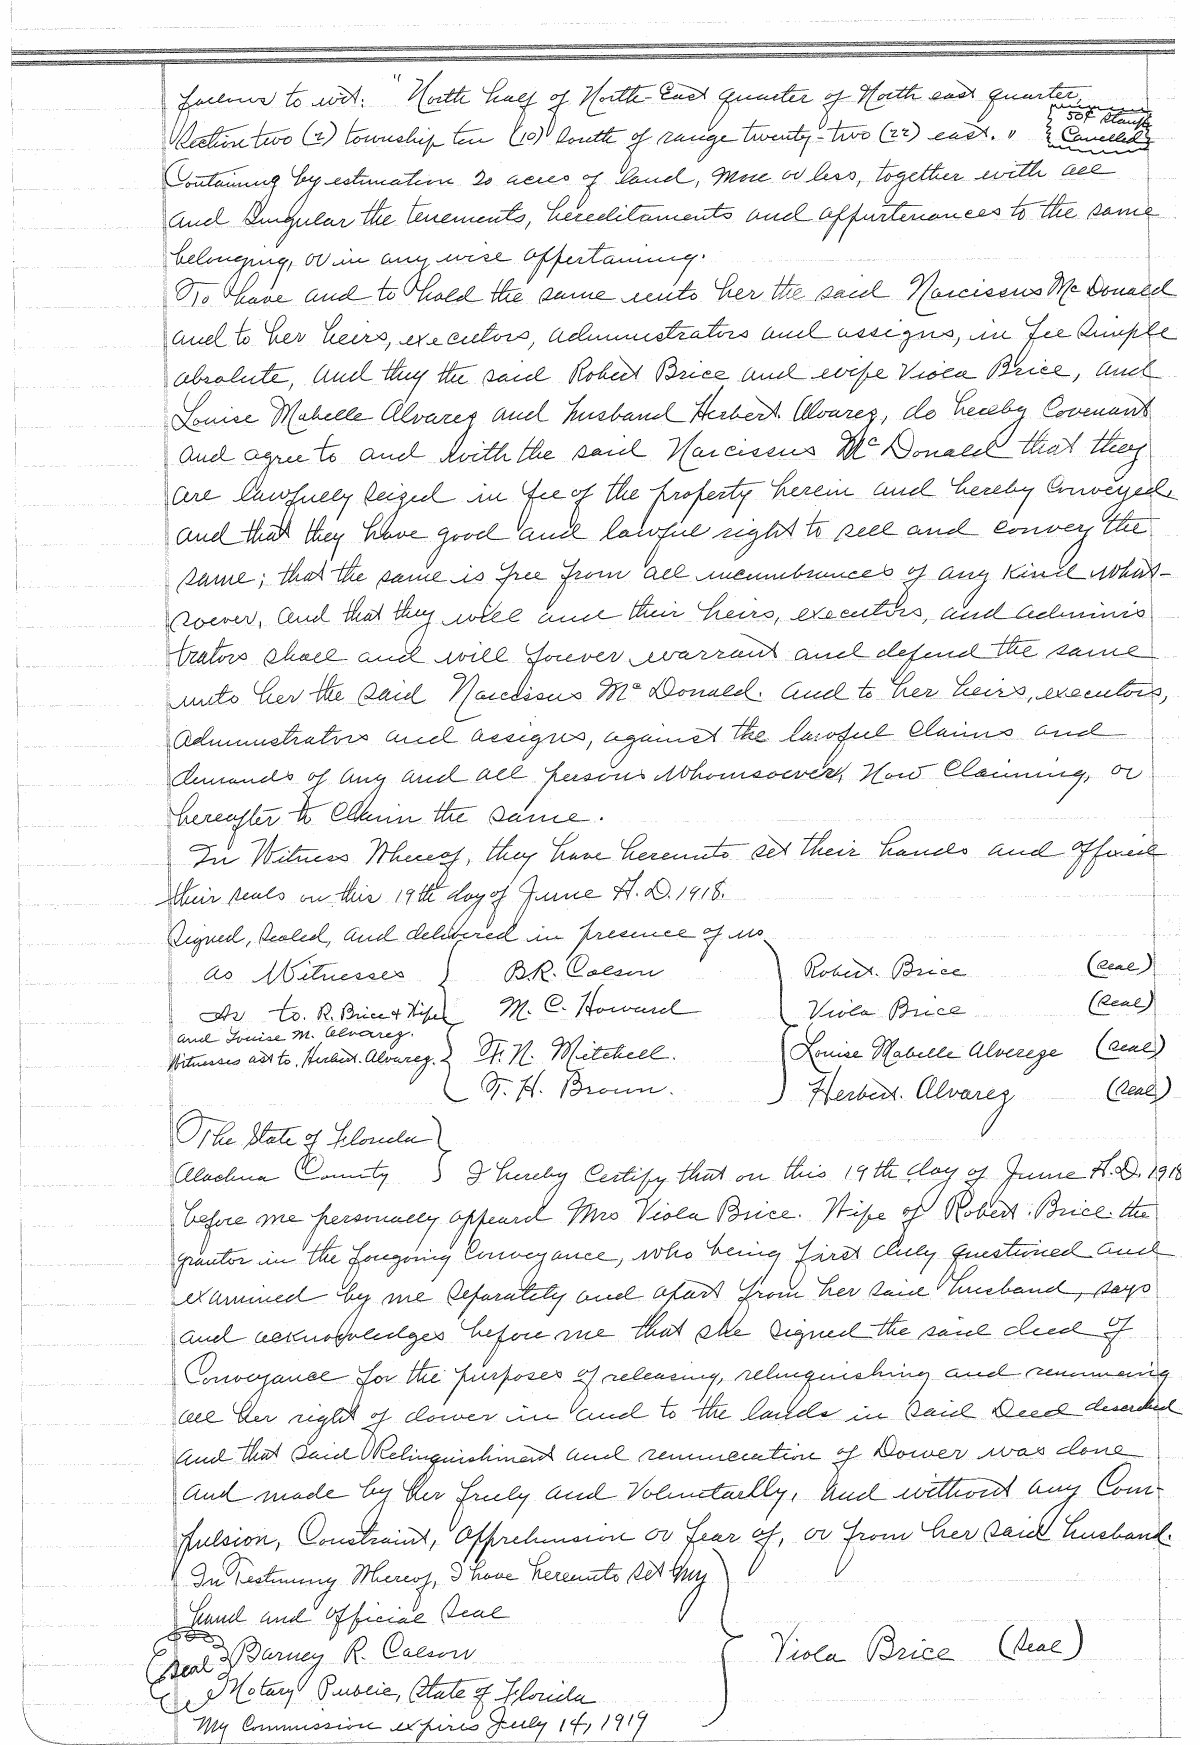 follows to wit: "North half of North-East quarter of North east quarter,
Section two (2) township ten (10) South of range twenty-two (22) east."
50¢ Stamps
Cancelled
Containing by estimation 20 acres of land, more or less, together with all
and Singular the tenements, hereditaments and appurtenances to the same
belonging, or in any wise appertaining.
To have and to hold the same unto her the said Narcissus McDonald
and to her heirs, executors, administrators and assigns, in fee Simple
absolute, and they the said Robert Brice and wife Viola Brice, and
Louise Mabelle Alvarez and husband Herbert Alvarez, do hereby Covenant
and agree to and with the said Narcissus McDonald that they
are lawfully seized in fee of the property herein and hereby Conveyed,
and that they have good and lawful right to sell and convey the
same; that the same is free from all incumbrances of any kind what-
soever, and that they will and their heirs, executors, and adminis
trators shall and will forever warrant and defend the same
unto her the said Narcissus McDonald. and to her heirs, executors,
administrators and assigns, against the lawful Claims and
demands of any and all persons whomsoever, Now Claiming, or
hereafter to Claim the same.
In Witness Whereof, they have hereunto set their hands and affixed
their seals on this 19th day of June A.D. 1918.
Signed, sealed, and delivered in presence of us
as Witnesses } B.R. Colson } Robert Brice (Seal)
As to R. Brice & Wife M. C. Howard Viola Brice (Seal)
and Louise M. Alvarez.
Witnesses as to Herbert Alvarez. } F. N. Mitchell. Louise Mabelle Alvereze (Seal)
T. H. Brown. } Herbert Alvarez (Seal)
The State of Florida }
Alachua County } I hereby Certify that on this 19th day of June A.D. 1918
before me personally appeard Mrs Viola Brice. Wife of Robert Brice the
grantor in the foregoing Conveyance, who being first duly questioned and
examined by me separately and apart from her said husband, says
and acknowledges before me that she signed the said deed of
Conveyance for the purposes of releasing, relinquishing and renouncing
all her right of dower in and to the lands in said Deed described
and that said Relinquishment and renunciation of Dower was done
and made by her freely and Voluntarily, and without any Com-
pulsion, Constraint, Apprehension or fear of, or from her said husband.
In Testimony Whereof, I have hereunto set my
hand and official Seal
(Seal) Barney R. Colson } Viola Brice (Seal)
Notary Public, State of Florida
My Commission expires July 14, 1919